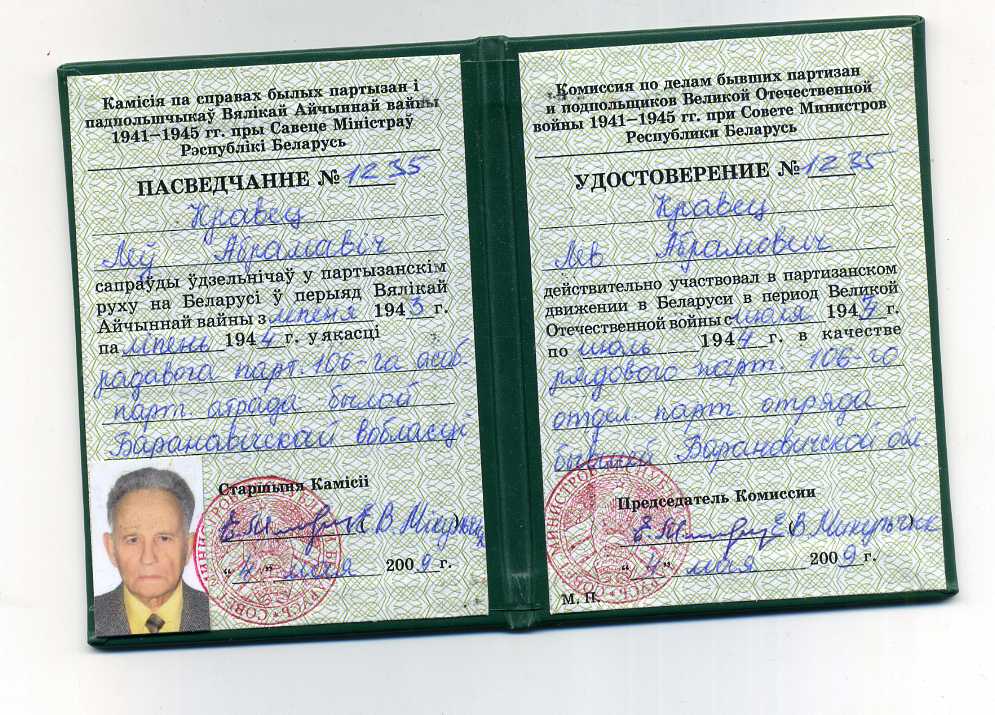 Камісія па справах былых партызан і
падпольшчыкаў Вялікай Айчыннай вайны
1941—1945 гг. пры Савеце Міністраў
Рэспублікі Беларусь
ПАСВЕДЧАННЕ № 1235
Кравец
Леў Абрамавіч
сапраўды ўдзельнічаў у партызанскім
руху на Беларусі ў перыяд Вялікай
Айчыннай вайны з ліпеня 1943 г.
па ліпень 1944 г. у якасці
радавога парт. 106-га асоб.
парт. атрада былой
Баранавіцкай вобласці
Старшыня Камісіі
"4" мая 2009 г.
Комиссия по делам бывших партизан
и подпольщиков Великой Отечественной
войны 1941—1945 гг. при Совете Министров
Республики Беларусь
УДОСТОВЕРЕНИЕ № 1235
Кравец
Лев Абрамович
действительно участвовал в партизанском
движении в Беларуси в период Великой
Отечественной войны с июля 1943 г.
по июль 1944 г. в качестве
рядового парт. 106-го
отдел. парт. отряда
бывшей Барановичской обл.
Председатель Комиссии
"4" мая 2009 г.
М. П.